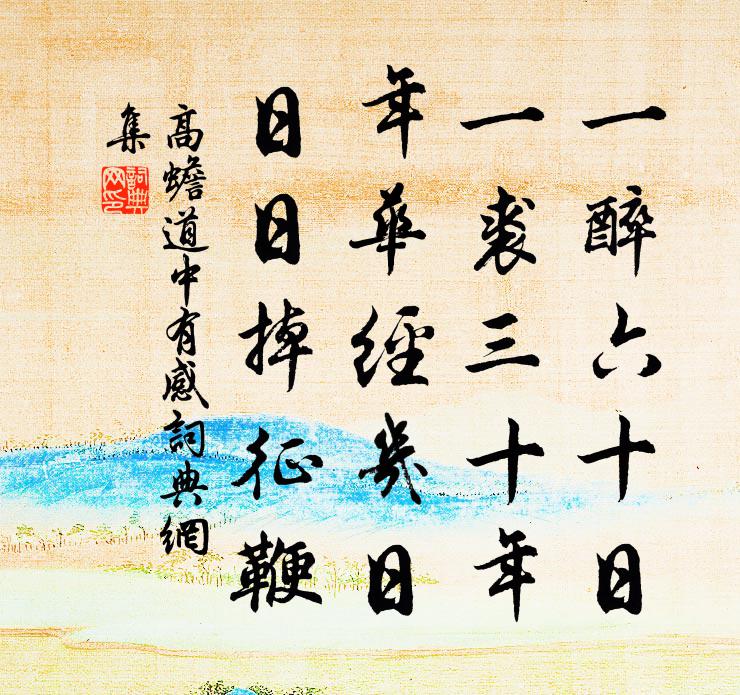 一醉六十日
一裘三十年
年華經幾日
日日掉征鞭
高蟾道中有感詞典網
集
詞典
网印